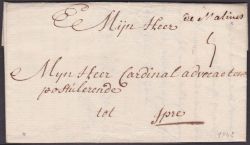 Mijn Heer
de Malines
5
Myn Heer Cardinal advocaet
postulerende
tot Ipre